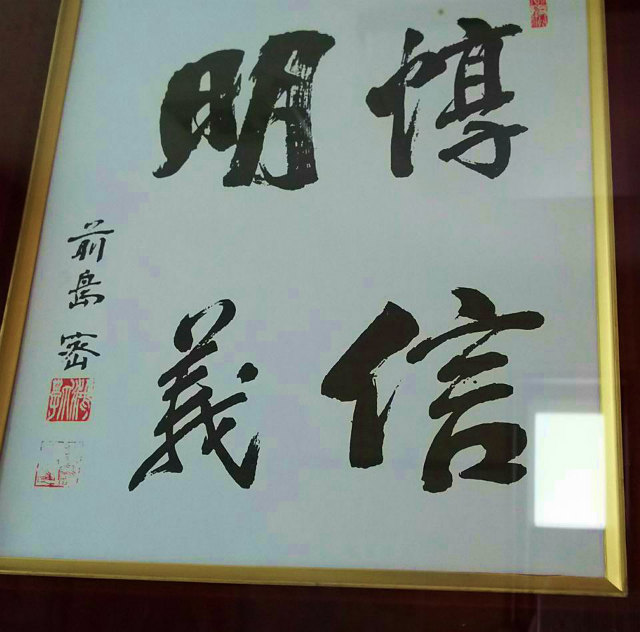 惇信
明義
前島密